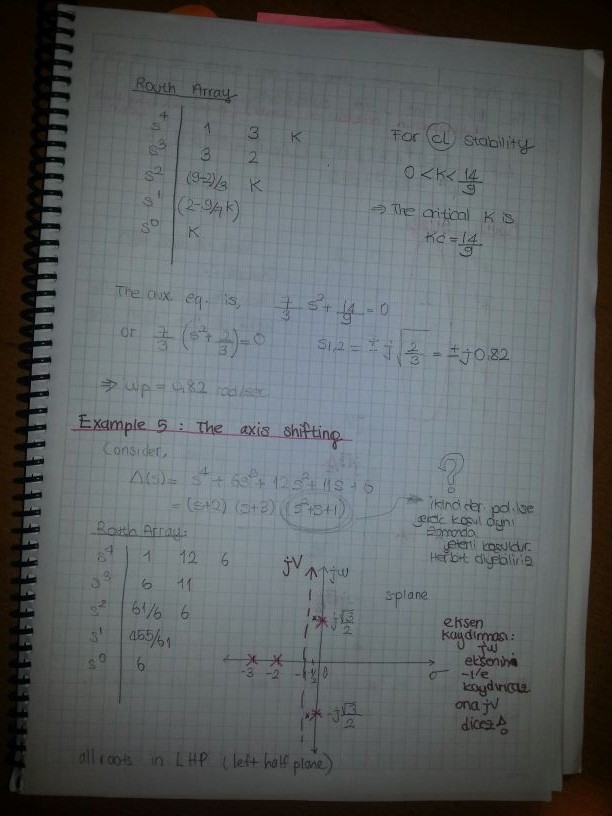 Routh Array
s⁴ | 1 3 K
s³ | 3 2
s² | (9-2)/3 K
s¹ | (2-9/7K)
s⁰ | K
For CL stability
0 < K < 14/9
⇒ The critical K is
Kc = 14/9
The aux. eq. is, 7/3 s² + 14/9 = 0
or 7/3 (s² + 2/3) = 0 s1,2 = ± j√(2/3) = ± j0.82
⇒ wp = 0,82 rad/sec
Example 5 : The axis shifting
Consider,
Δ(s) = s⁴ + 6s³ + 12s² + 11s + 6
= (s+2) (s+3) (s²+s+1)
?
ikinci der. pol. ise
gerek koşul aynı
zamanda
yeterli koşuldur.
Herbit diyebiliriz
Routh Array:
s⁴ | 1 12 6
s³ | 6 11
s² | 61/6 6
s¹ | 455/61
s⁰ | 6
jV jw
s-plane
j√3/2
-3 -2 -1 -1/2 0 σ
-j√3/2
eksen
kaydırması:
jw
eksenini
-1'e
kaydırıcaz
ona jV
dicez
all roots in LHP (left half plane)